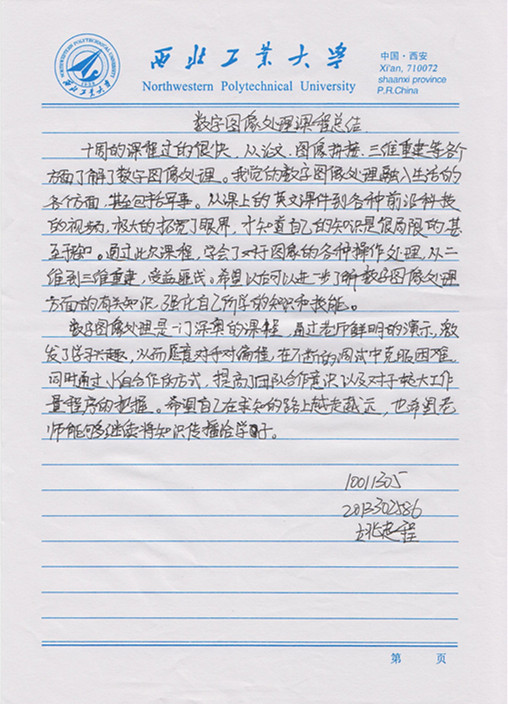 西北工业大学
Northwestern Polytechnical University
中国·西安
Xi'an, 710072
shaanxi province
P.R.China
数字图像处理课程总结
十周的课程过的很快，从论文、图像拼接、三维重建等各个
方面了解了数字图像处理。我觉的数字图像处理融入生活的
各个方面，甚至包括军事。从课上的英文课件到各种前沿科技
的视频，极大的拓宽了眼界，才知道自己的知识是很局限的，甚
至于无知。通过此次课程，学会了对于图像的各种操作处理，从二
维到三维重建，受益匪浅。希望以后可以进一步了解数字图像处理
方面的有关知识，强化自己所学的知识和技能。
数字图像处理是一门深奥的课程，通过老师鲜明的演示，激
发了学习兴趣，从而愿意动手对编程，在不断的调试中克服困难，
同时通过小组合作的方式，提高了团队合作意识以及对于较大工作
量程序的把握。希望自己在求知的路上越走越远，也希望老
师能够继续将知识传播给学子。
10011305
2013302586
姚忠程
第 页